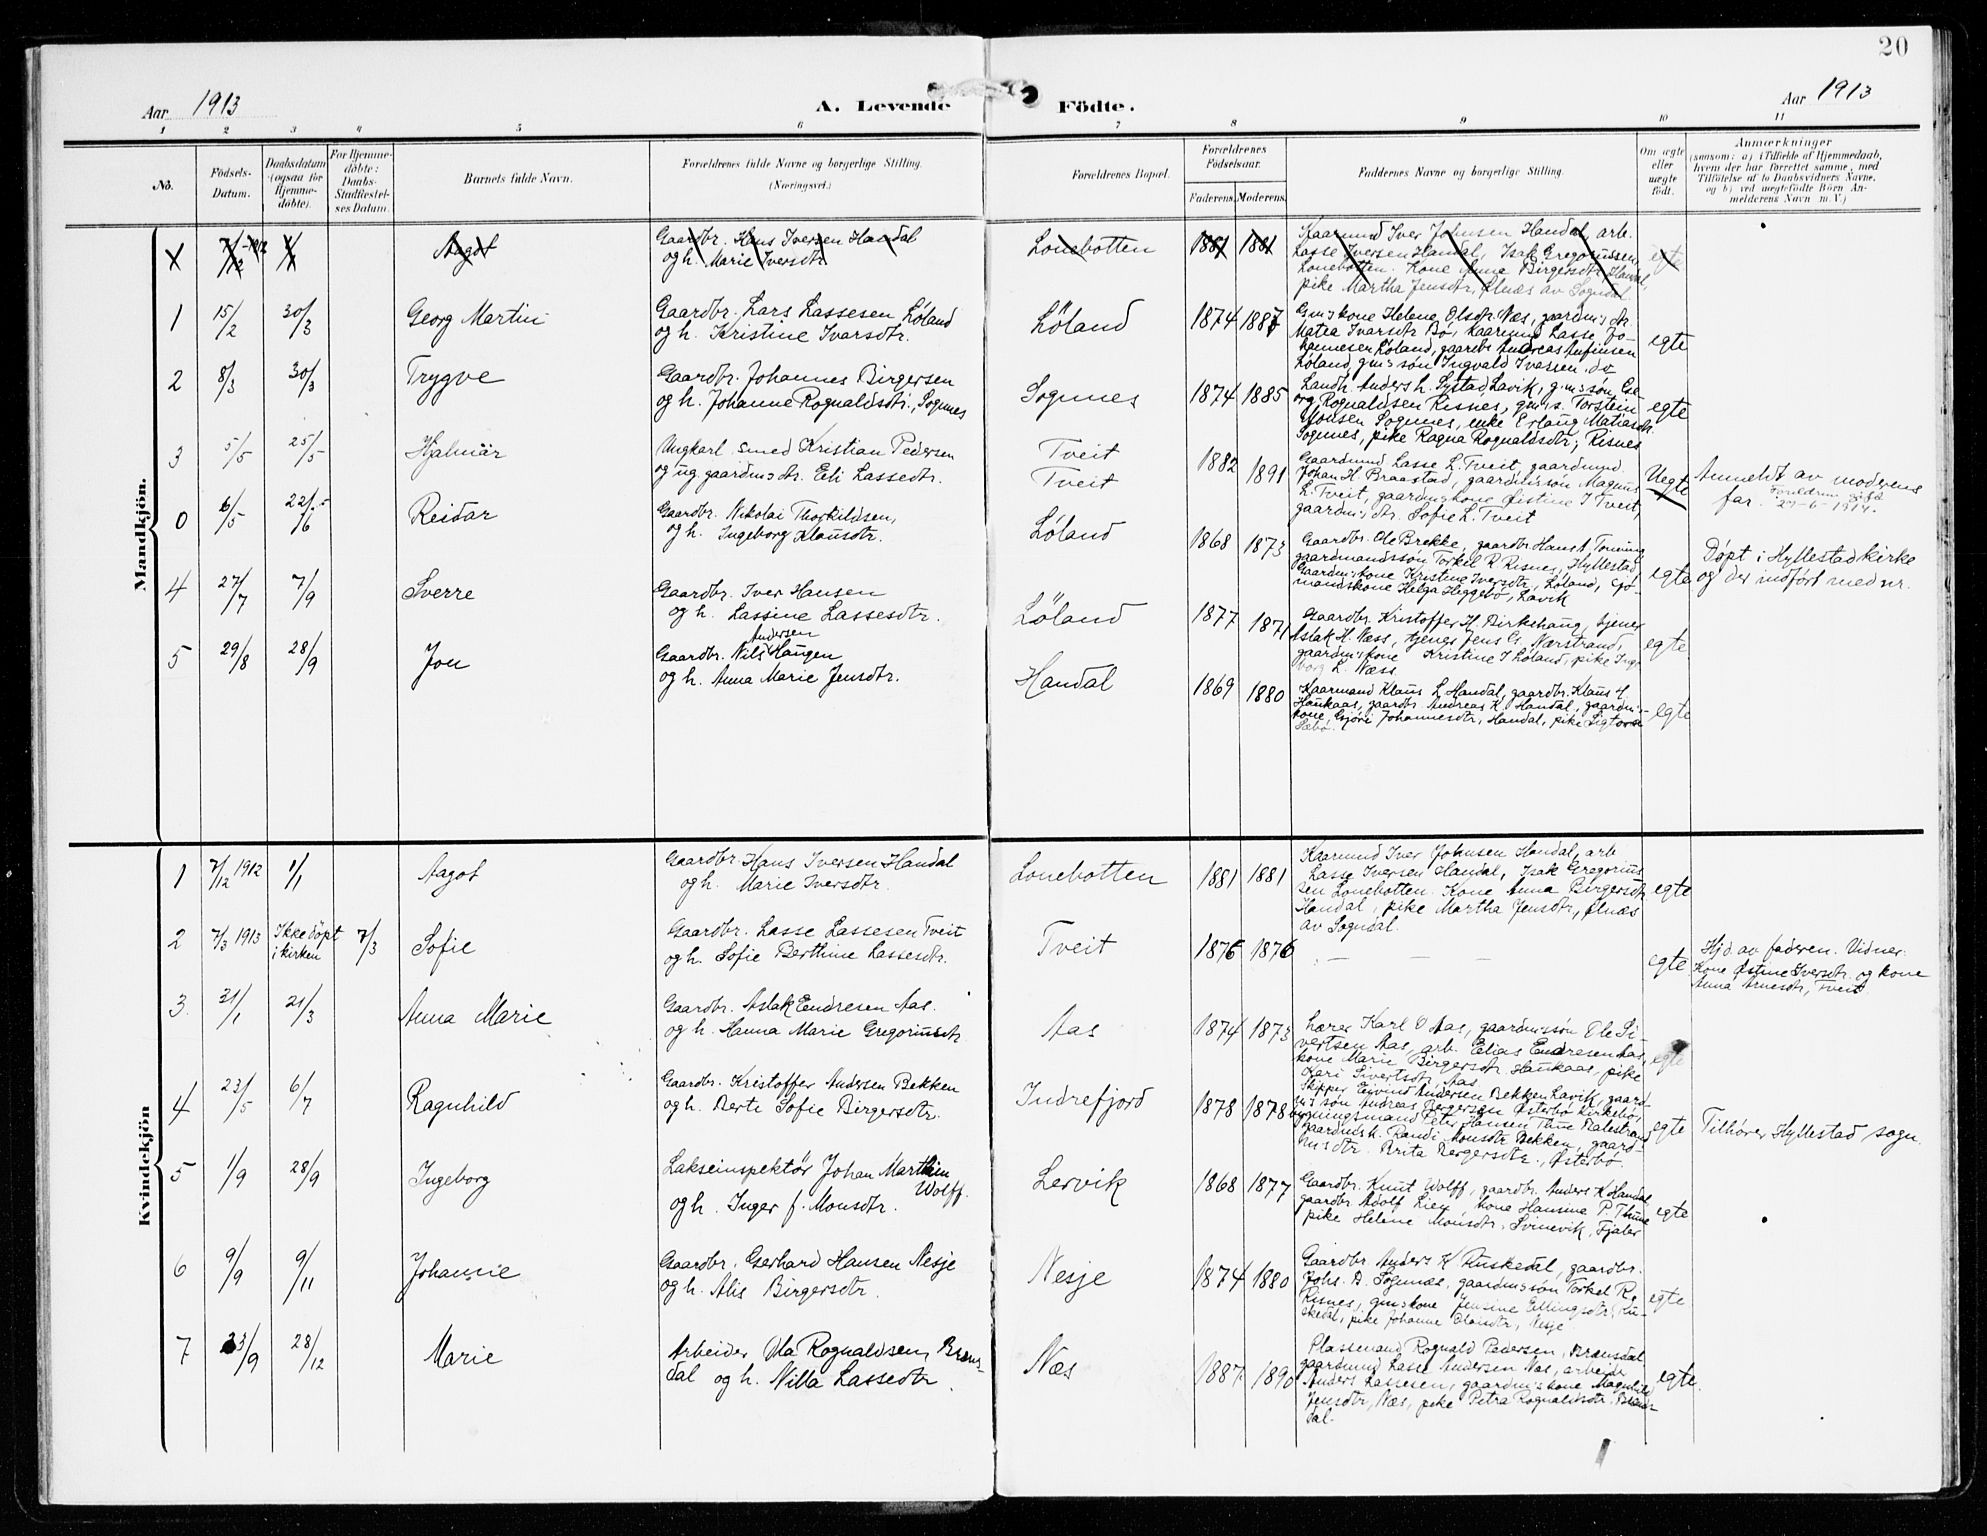 20
Aar 1913
A. Levende Födte.
Aar 1913
1 2 3 4 5 6 7 8 9 10 11
No.
Födsels-
Datum.
Daabsdatum
(ogsaa for
Hjemme-
döbte).
For Hjemme-
döbte:
Daabs-
Stadfæstel-
ses Datum.
Barnets fulde Navn.
Forældrenes fulde Navne og borgerlige Stilling.
(Næringsvei.)
Forældrenes Bopæl.
Forældrenes
Födselsaar.
Faderens. Moderens.
Faddernes Navne og borgerlige Stilling.
Om ægte
eller
uægte
födt.
Anmærkninger
(saasom: a) i Tilfælde af Hjemmedaab,
hvem der har forrettet samme, med
Tilföielse af to Daabsvidners Navne,
og b) ved uægtefödte Börn An-
melderens Navn m. V.)
Mandkjön.
7/12 1912 Aagot
Gaardbr. Hans Iversen Handal
og h. Marie Iversdtr
Lonebotten 1881 1881
Kaarmand Iver Johnsen Handal, arb.
Lasse Iversen Handal, Isak Gregoriussen
Lonebotten. Kone Anna Birgersdtr Handal,
pike Martha Jensdtr, Ølnæs av Sogndal
egte
1 15/2 30/3 Georg Martin
Gaardbr. Lars Lassesen Løland
og h. Kristine Ivarsdtr.
Løland 1874 1887
Gm's kone Helene Olsdtr. Næs, gaardm's dtr
Matea Ivarsdtr Bø, Kaarmand Lasse Jo-
hannesen Løland, gaardbr Andreas Anfinsen
Løland, gm's søn Ingvald Ivarsen, do
egte
2 8/3 30/3 Trygve
Gaardbr. Johannes Birgersen
og h. Johanne Rognaldsdtr., Sognnes
Sognnes 1874 1885
Landh. Anders h. Systad, Lavik, gm's søn Ge-
org Rognaldsen Risnes, gm's s. Torstein
Monsen Sognnes, enke Erlaug Matiasdtr.
Sognnes, pike Ragna Rognaldsdtr, Risnes
egte
3 5/5 25/5 Hjalmar
Ungkarl smed Kristian Pedersen
og ug. gaardm's dtr. Eli Lassedtr.
Tveit
Tveit
1882 1891
Gaardmand Lasse L. Tveit, gaardmand
Johan H. Braastad, gaardm's søn Magnus
L. Tveit, gaardm's kone Øistine I Tveit,
gaardm's dtr. Sofie L. Tveit
Uegte
Anmeldt av moderens
far. Foreldrene gift
27-6-1914.
0 6/5 22/6 Reidar
Gaardbr. Nikolai Thorkildsen,
og h. Ingeborg Klausdtr.
Løland 1868 1873
Gaardbr. Ole Brekke, gaardbr Hans A,
gaardmandssøn Torkel R Risnes, Hyllestad
Gaardm's kone Kristine Iversdtr, Løland, Gjø-
mandskone Helga Heggebø, Lavik
egte
Døpt i Hyllestad kirke
og der indført med nr.
4 27/7 7/9 Sverre
Gaardbr. Iver Hansen
og h. Lassine Lassesdtr.
Løland 1877 1871
Gaardbr. Kristoffer H. Birkehaug, tjener
Aslak H. Næss, tjener Jens G. Nærstrand,
gaardm's kone Kristine I Løland, pike Inge-
borg L. Næss
egte
5 29/8 28/9 Jon
Andersen
Gaardbr. Nils Haugen
og h. Anna Marie Jensdtr.
Handal 1869 1880
Kaarmand Klaus L Handal, gaardbr. Klaus H.
Haukaas, gaardbr. Andreas K. Handal, gaardm's
kone, Gjøri Johannesdtr, Handal, pike
Sæbø.
egte
Kvindekjön
1 7/12 1912 1/1 Aagot
Gaardbr. Hans Iversen Handal
og h. Marie Iversdtr.
Lonebotten 1881 1881
Kaarmand Iver Johnsen Handal, arb.
Lasse Iversen Handal, Isak Gregorius
sen Lonebotten. Kone Anna Birgersdtr
Handal, pike Martha Jensdtr, Ølnæs
av Sogndal.
egte
2 7/3 1913 Ikke døpt
i kirken 7/3 Sofie
Gaardbr. Lasse Lassesen Tveit
og h. Sofie Berthine Lassesdtr.
Tveit 1876 1876
— — —
egte
Hjd. av faderen. Vidner.
Kone Østine Iversdtr. og kone
Anna Arnesdtr, Tveit.
3. 31/1 21/3 Anna Marie
Gaardbr. Aslak Endresen Aas.
og h. Hanna Marie Gregoriusdtr.
Aas 1874 1873
Lærer Karl O Aas, gaardm's søn Ole Si-
vertsen Aas, arb. Elias Endresen Aas,
kone Marie Birgersdtr Haukaas, pike
Kari Sivertsdtr, Aas
egte
4 23/5 6/7 Ragnhild
Gaardbr. Kristoffer Andersen Bekken
og h. Berte Sofie Birgersdtr.
Indrefjord 1878 1878
Skipper Eivind Andersen Bekken Lavik, gaard-
m's søn Andreas Bergersen Østerbø Kirkebø,
bygningsmand Peter Hansen Thue Balestrand
gaardmdsk. Randi Monsdtr Bekken, gaard-
m's dtr. Brita Bergersdtr., Østerbø.
egte
Tilhører Hyllestad sogn.
5 1/9 28/9 Ingeborg
Lakseinspektør Johan Marthin
Wolff.
og h. Inger f. Monsdtr.
Lervik 1868 1877
Gaardbr. Knut Wolff, gaardbr. Anders K Handal,
gaardbr. Adolf Lien, kone Hansine P. Thune
pike Helene Monsdtr, Svinevik, Fjaler
egte
6 9/9 9/11 Johanne
Gaardbr. Gerhard Hansen Nesje
og h. Alis Birgersdtr.
Nesje 1874 1880
Gaardbr. Anders K Ruskedal, gaardbr.
Johs. A. Sognnæs, gaardm's søn Torkel R.
Risnes, gm's kone Jensine Ellingsdtr, Ru-
skedal, pike Johanne Olaisdtr, Nesje
egte
7 23/9 28/12 Marie
Arbeider Ola Rognaldsen, Bræns-
dal og h. Nilla Lassedtr.
Næs 1887 1890
Plassmand Rognald Pedersen, Brænsdal
gaardmand Lasse Andersen Næs, arbeider
Anders Lassesen, gaardm's kone Magnhild
Jensdtr, Næs, pike Petra Rognaldsdtr. Bræns-
dal.
egte.